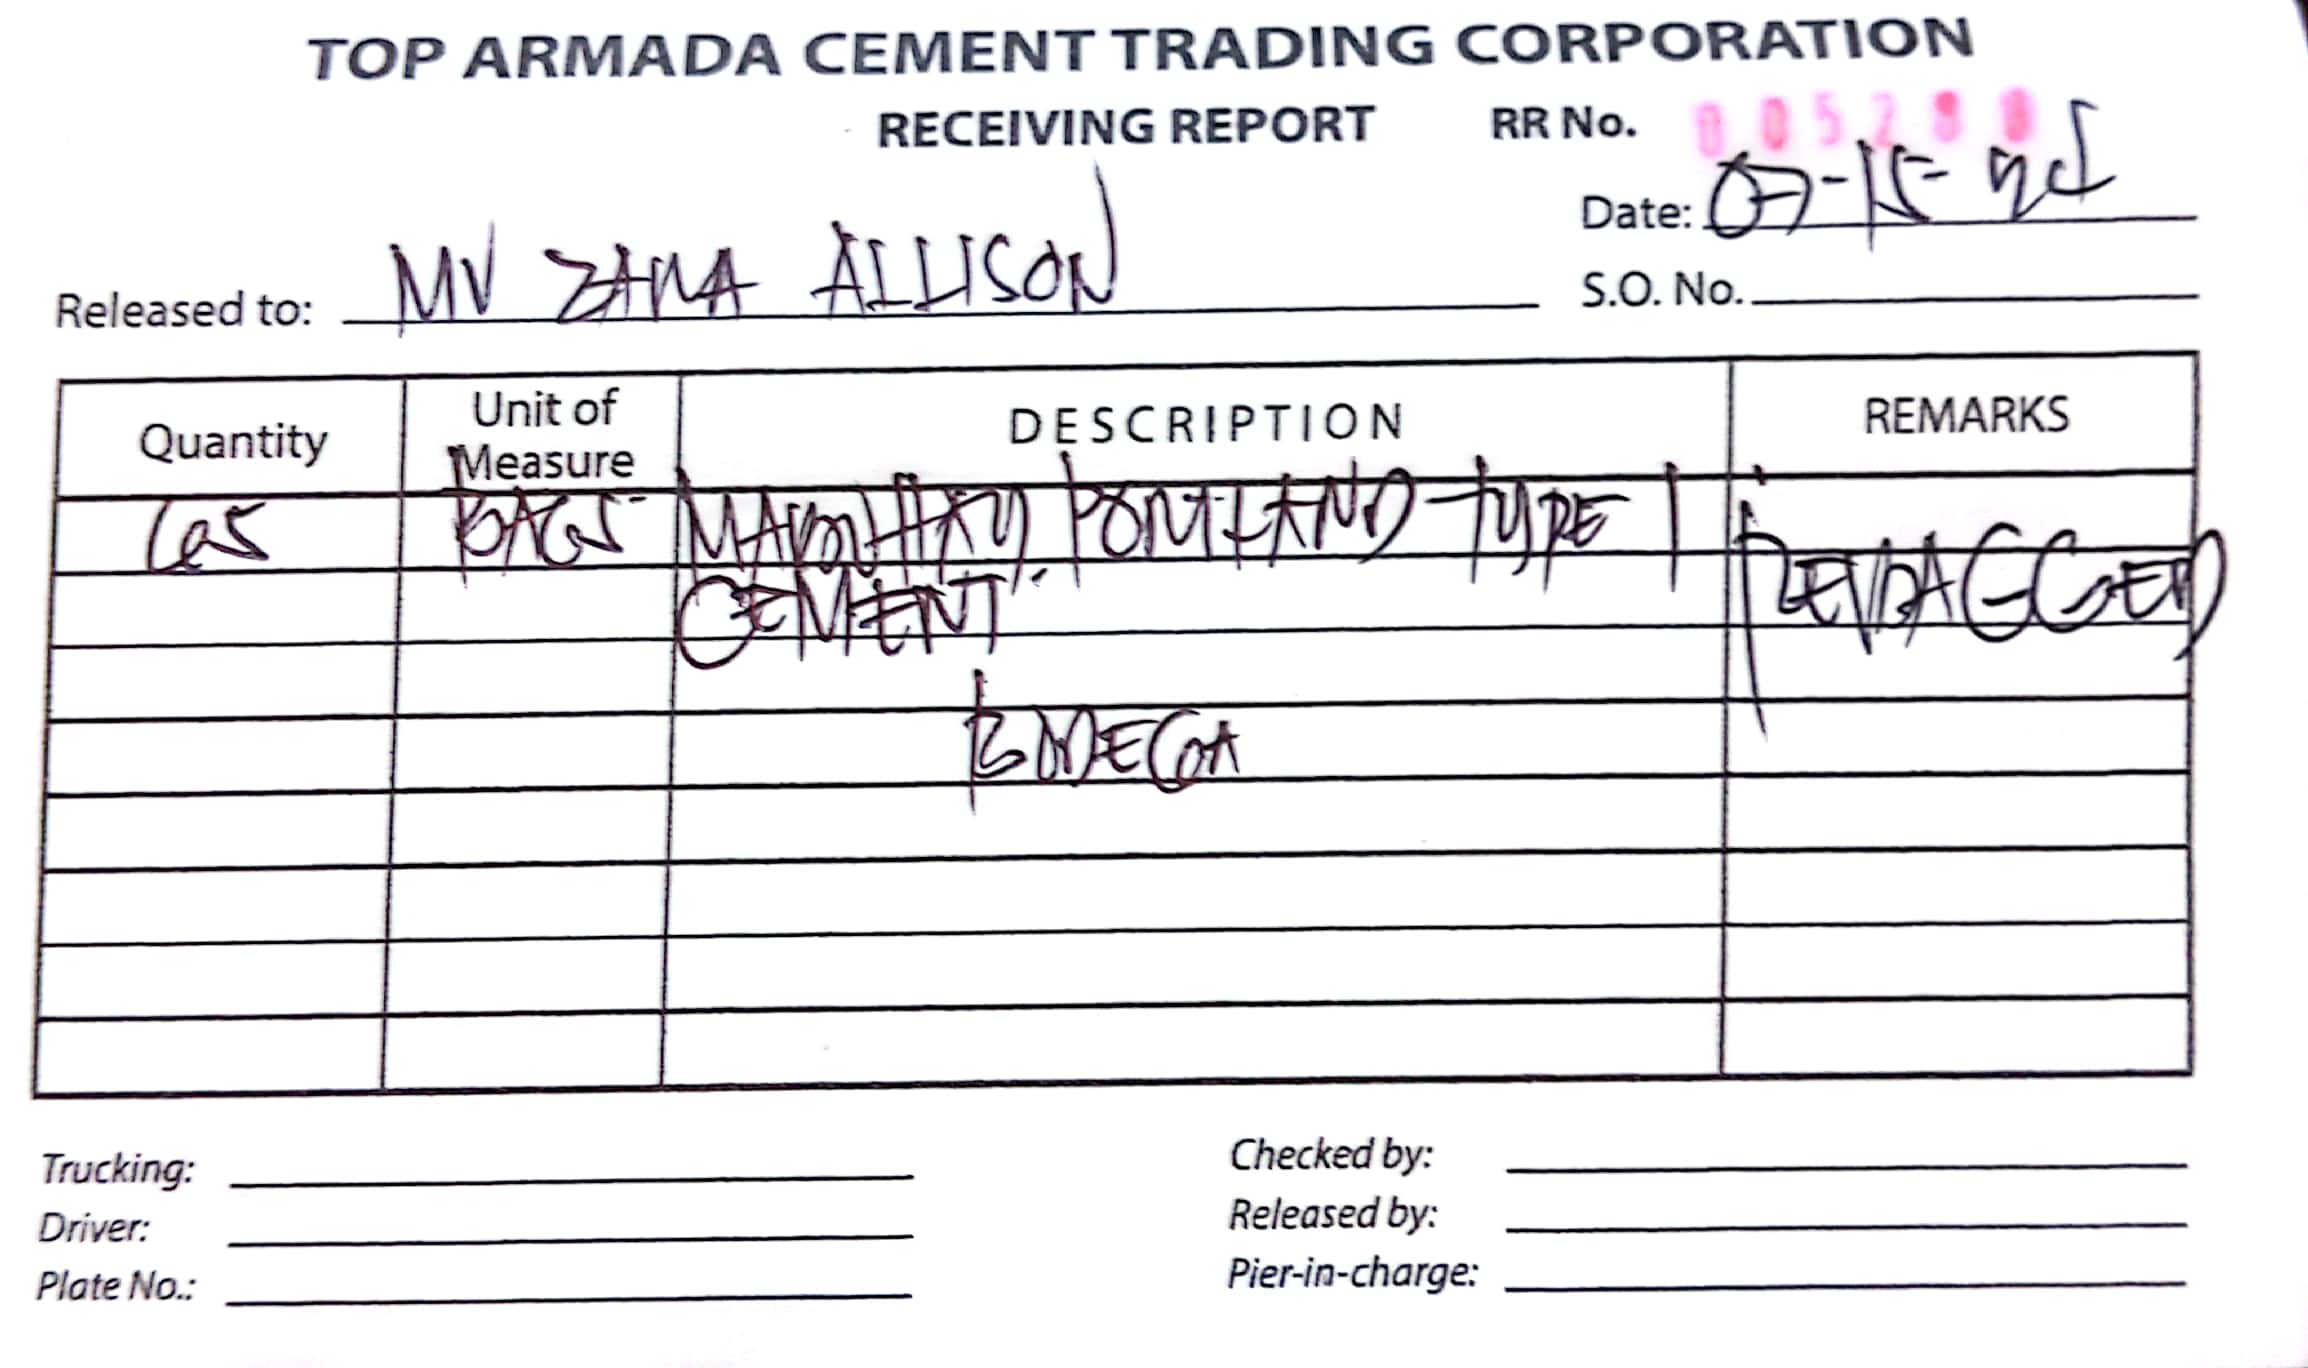 TOP ARMADA CEMENT TRADING CORPORATION
RECEIVING REPORT RR No. 005280
Date: 07-15-
Released to: MV ZAMA ALLISON
S.O. No.
Quantity Unit of Measure DESCRIPTION REMARKS
BAGS PORTLAND TYPE 1 REBAGGED
CEMENT
BODEGA
Trucking:
Driver:
Plate No.:
Checked by:
Released by:
Pier-in-charge: